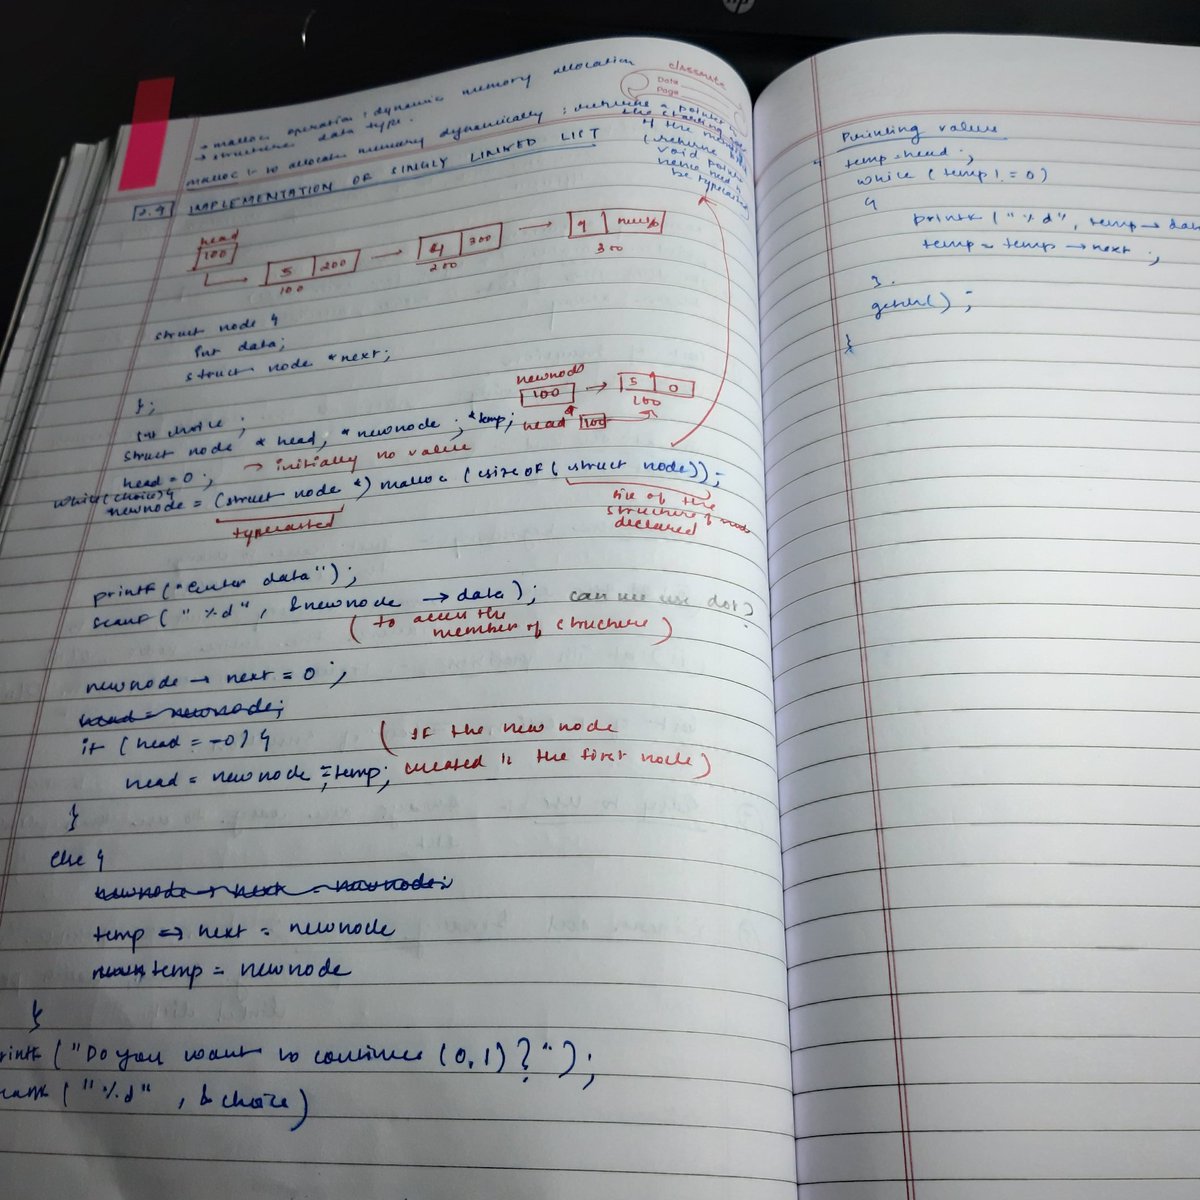 classmate
Date
Page
→ malloc operation : dynamic memory allocation
→ structure data type.
malloc :- to allocate memory dynamically : returns a pointer
(returns
void pointer
hence need to
be typecasted)
2.4 IMPLEMENTATION OF SINGLY LINKED LIST
head
100
5 200 → 4 300 → 9
100 200 300
struct node {
int data;
struct node *next;
};
int choice ;
struct node * head, *newnode ; *temp;
newnode
100 → 5 0
100
head 100
head = 0 ; → initially no value
while(choice){
newnode = (struct node *) malloc (sizeof (struct node));
typecasted
size of the
structure of node
declared
printf("Enter data");
scanf(" %d", &newnode → data); can we use dot?
(to access the
member of structure)
newnode → next = 0 ;
head = newnode;
if (head = = 0) {
(if the new node
created is the first node)
head = newnode = temp;
}
else {
newnode → next = newnode;
temp → next = newnode
temp = newnode
}
printf ("Do you want to continue (0,1) ? ");
scanf ("%d" , & choice)
Printing value
temp = head ;
while (temp != 0)
{
printf (" %d", temp → data
temp = temp → next ;
}
getch() ;
}
hp